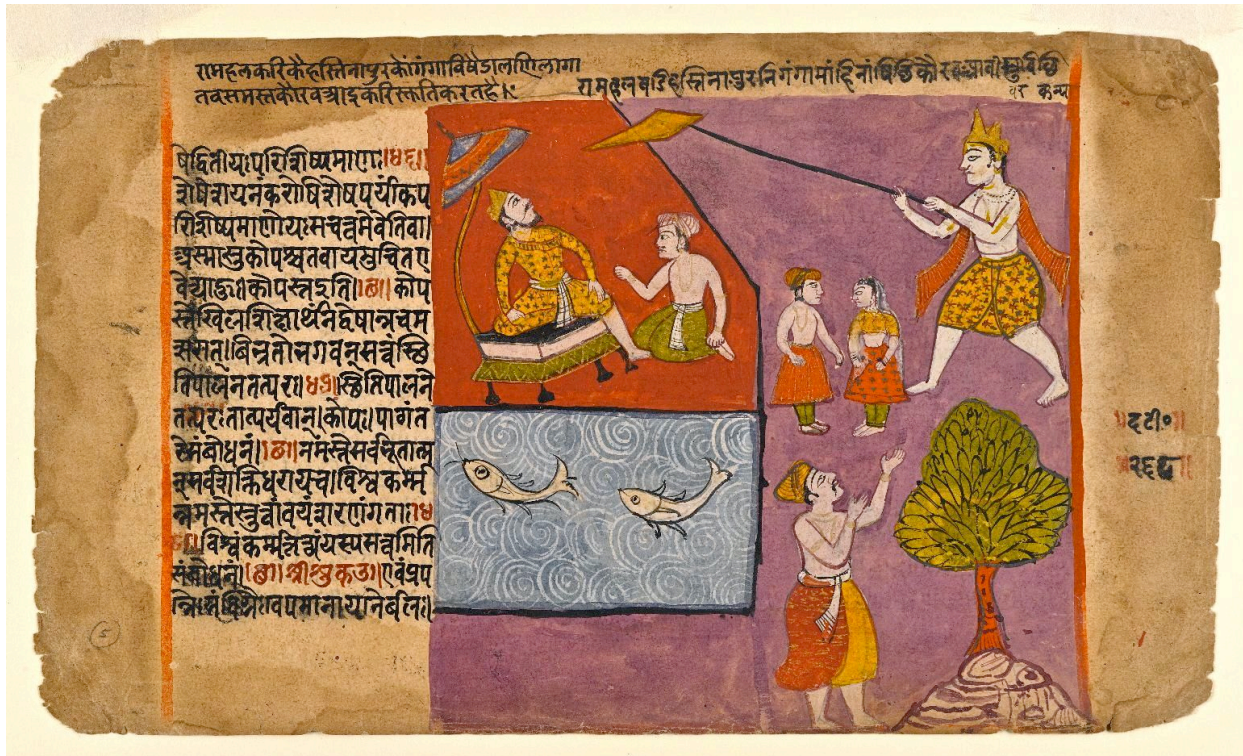 रामहलकरिकैहस्तिनापुरकोंगंगाविषैडालणिलागा
तवसमस्तकौरवआइकरिस्तुतिकरतहै।
रामहलषडिहस्तिनापुरनिगंगामांहिनांषिछिकौरव
वर कन्या
षेद्वितीयःपरिशिष्यमाणः।।४६।।
शेषेशयनंकरोषिशेषपर्यीकप
रिशिष्यमाणोयःसचत्वमेवेतिवा।
अस्मासुकोपश्चतवायमुचितए
वेत्याहुःकोपस्तइति।।छ।।कोप
स्तेखिलशिक्षार्थंनद्वेषान्नचम
त्सरात्।बिभ्रतोभगवन्सत्वंस्थि
तिपालनतत्परः।।४७।।स्थितिपालने
तत्परःतात्पर्यवान्।कोपः।पागंत
रेसंबोधनं।।छ।।नमस्तेसर्वभूतात्म
न्सर्वशक्तिधराव्यय।विश्वकर्म्म
न्नमस्तेस्तुत्वांवयंशरणंगताः।।४
८।।विश्वंकर्म्म यस्यसत्वमिति
संबोधनं।।छ।।श्रीशुकउ।।एवंप्रप
न्नैःसंविग्नैःवेपमानायनैर्बलः।
।।दटी०।।
5